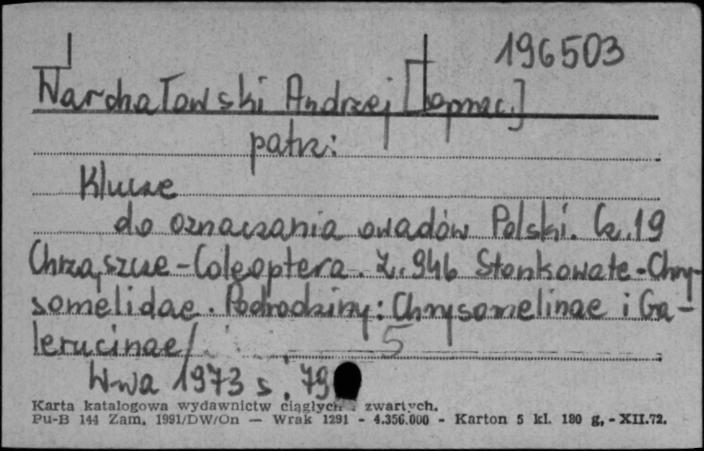 196503
Warchałowski Andrzej [oprac.]
patrz:
Klucze
do oznaczania owadów Polski. Cz. 19
Chrząszcze - Coleoptera. Z. 94b Stonkowate - Chry-
somelidae. Podrodziny: Chrysomelinae i Ga-
lerucinae/
5
W-wa 1973 s. 79
Karta katalogowa wydawnictw ciągłych i zwartych.
Pu-B 144 Zam. 1991/DW/On — Wrak 1291 - 4.356.000 - Karton 5 kl. 180 g, - XII.72.